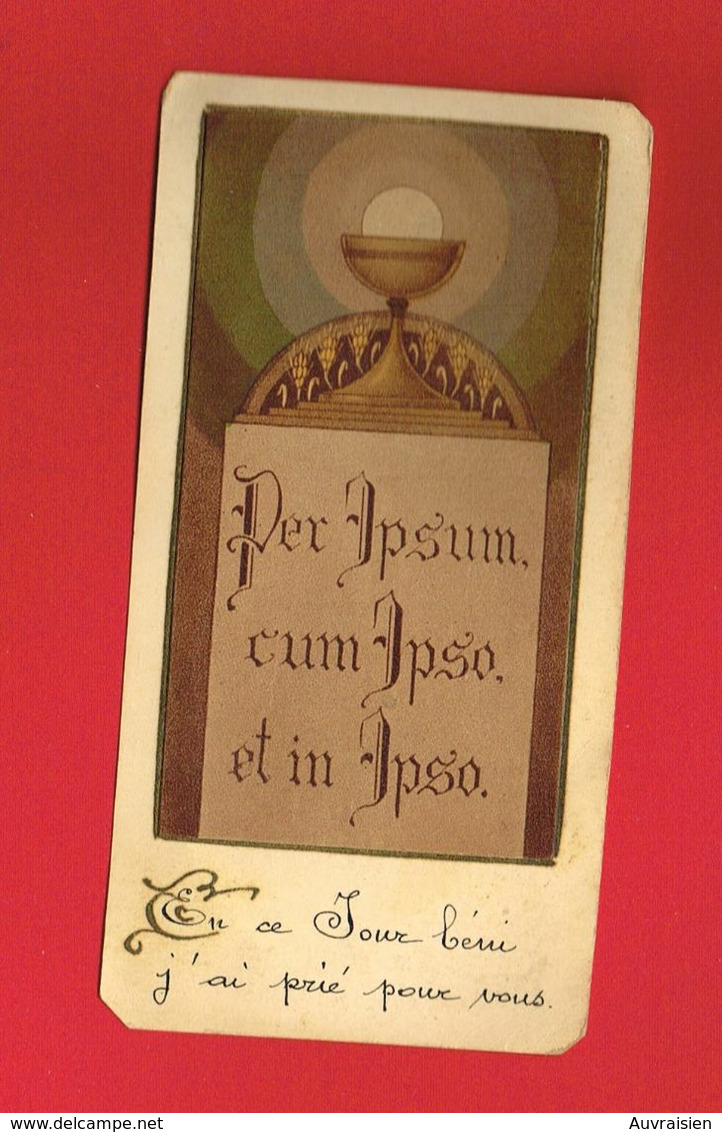 Per Ipsum,
cum Ipso,
et in Ipso.
En ce Jour béni
j'ai prié pour vous.
www.delcampe.net
Auvraisien